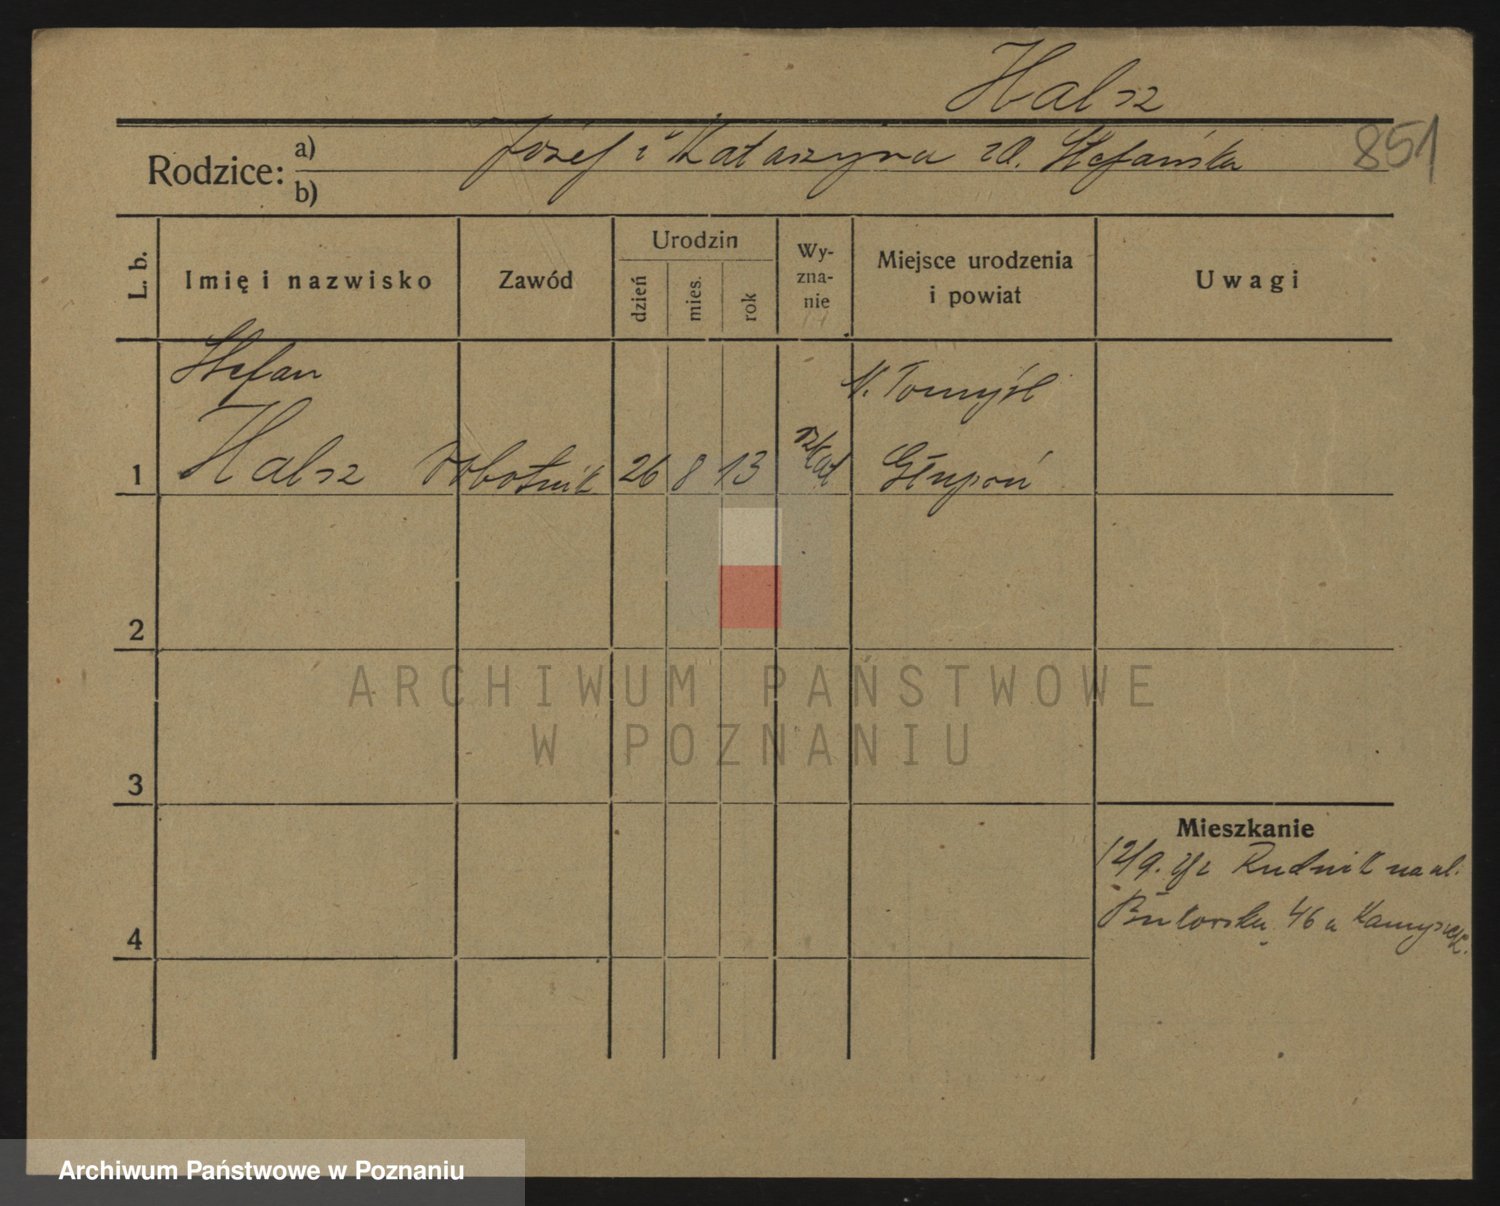 Halsz
851
Rodzice: a) Józef i Katarzyna zd. Stefańska
b)
L. b. Imię i nazwisko Zawód Urodzin dzień mies. rok Wy-zna-nie Miejsce urodzenia i powiat Uwagi
Stefan N. Tomyśl
1 Halsz robotnik 26 8 13 rz kat Głupoń
2
3
4
Mieszkanie
12/9. Rudnik na ul.
Bukowska 46 u
ARCHIWUM PAŃSTWOWE
W POZNANIU
Archiwum Państwowe w Poznaniu